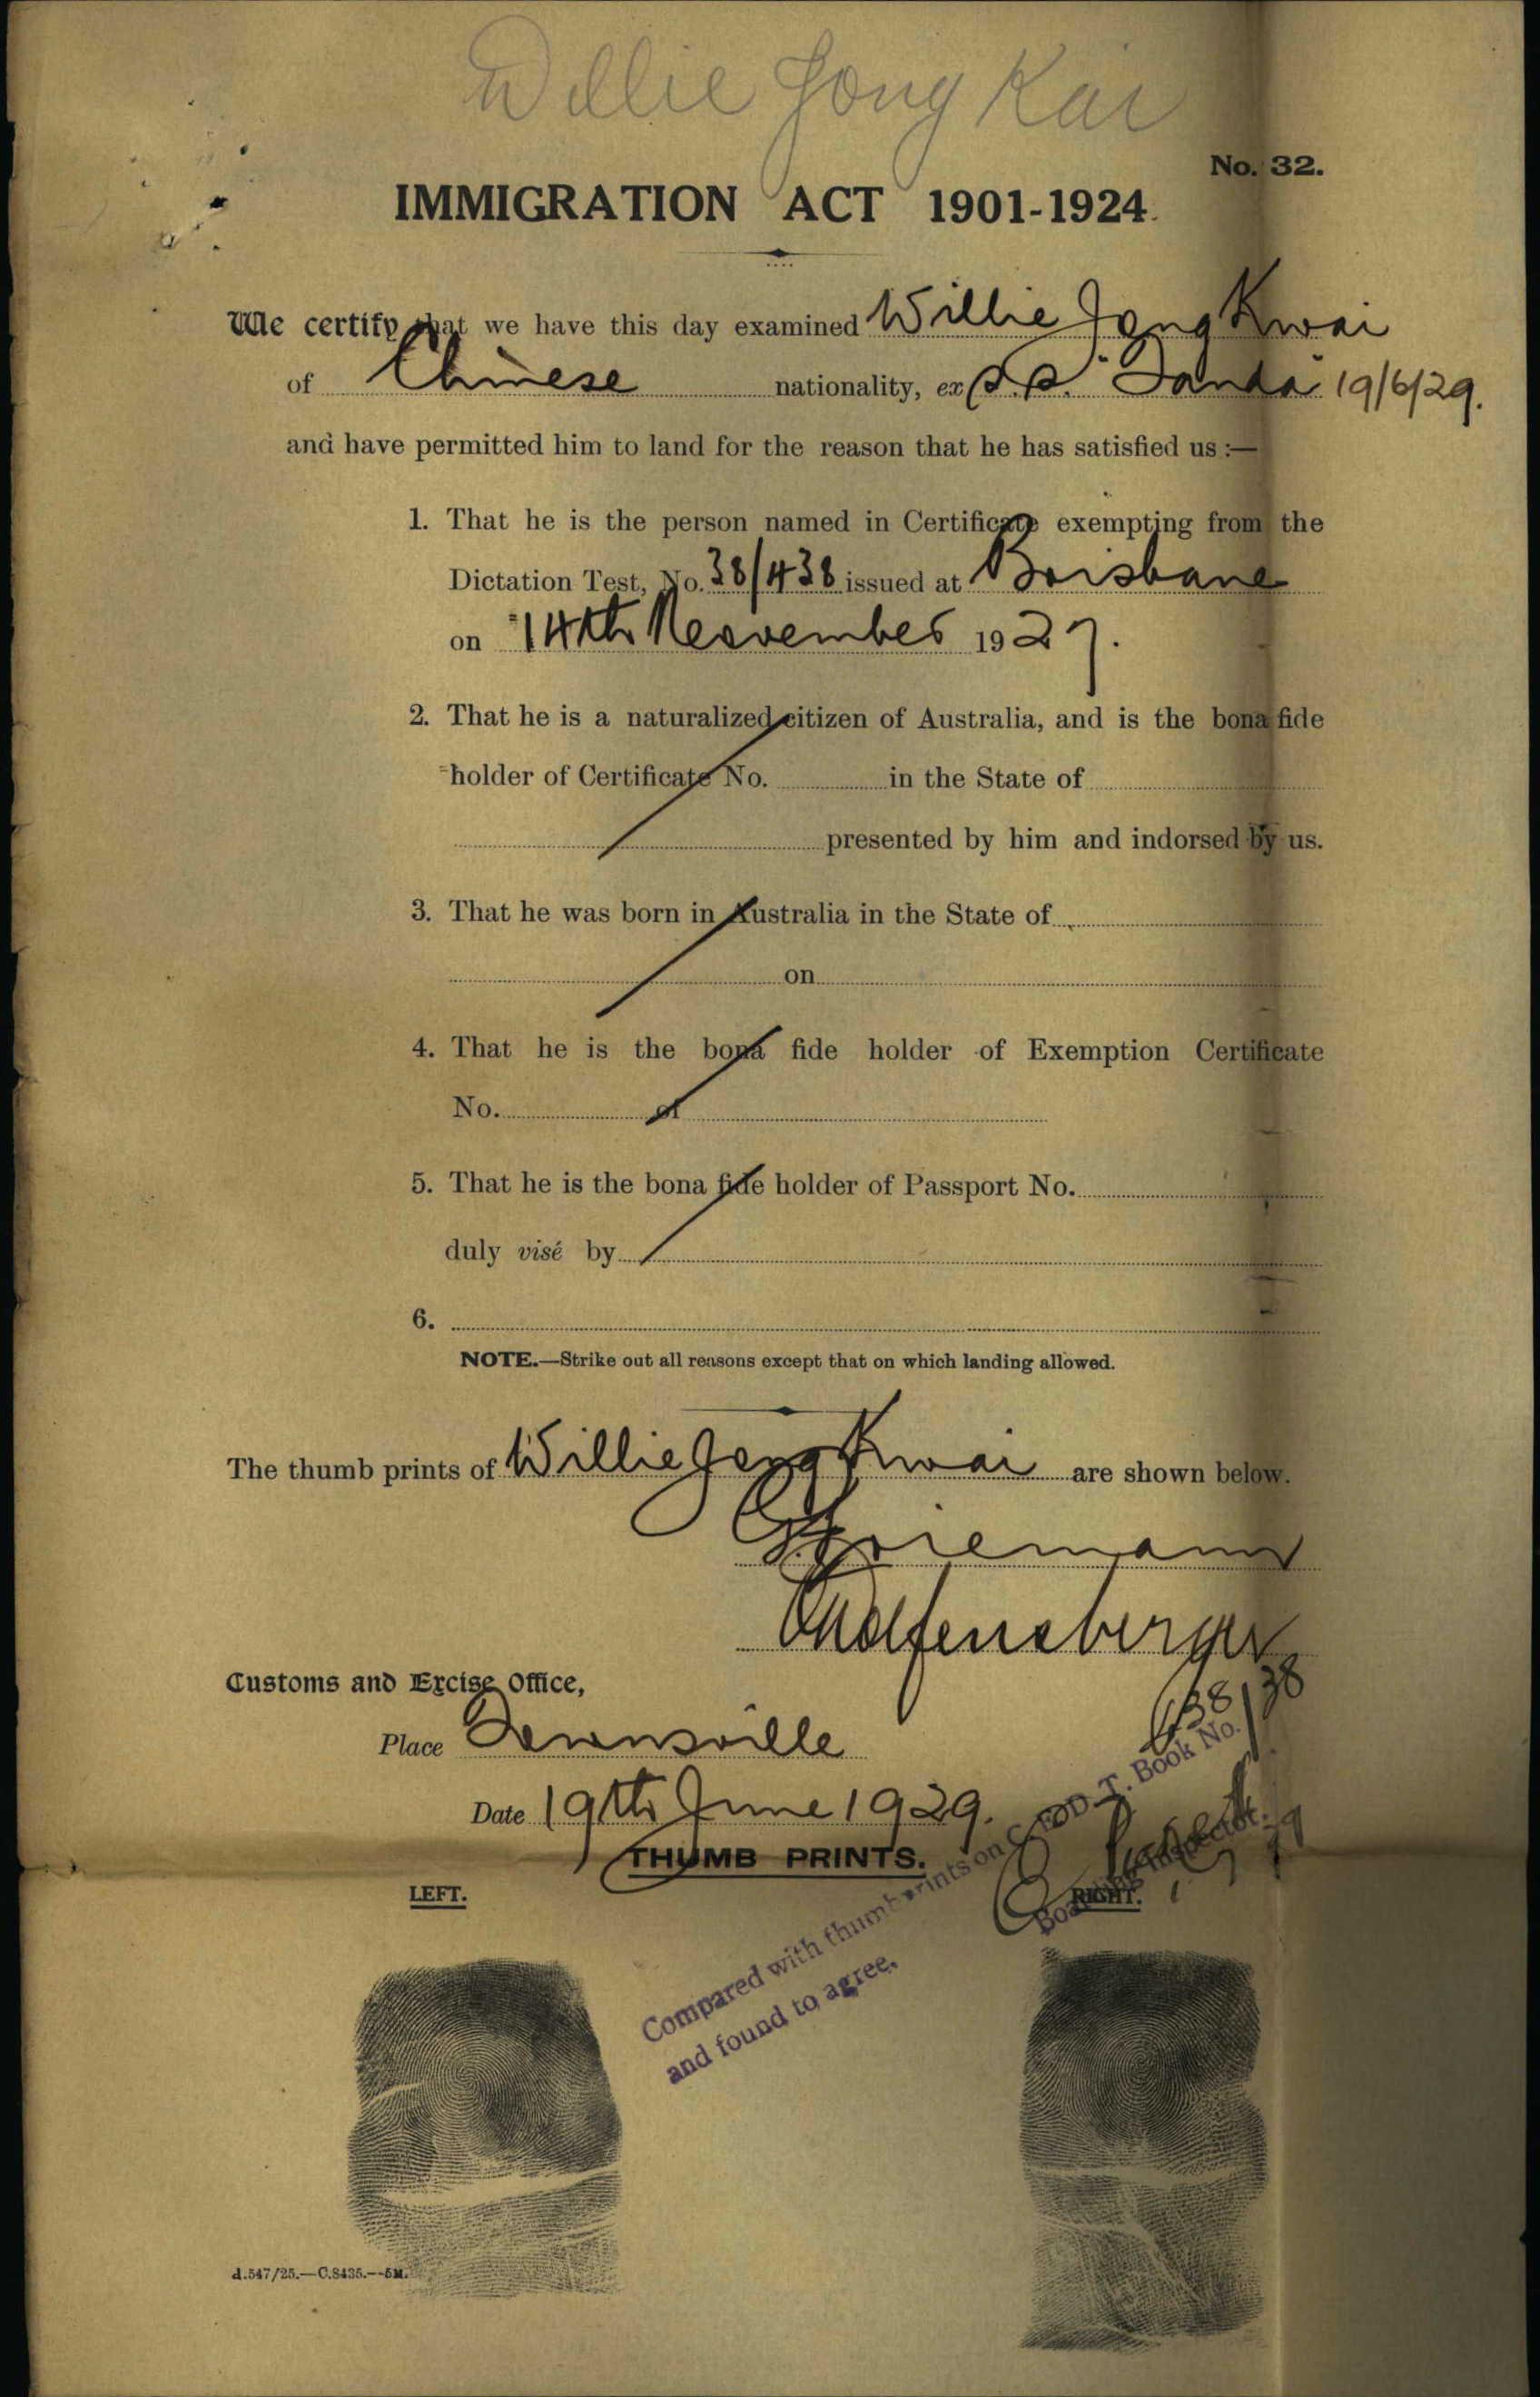 Willie Jong Kai
No. 32.
IMMIGRATION ACT 1901-1924.
We certify that we have this day examined Willie Jong Kwai
of Chinese nationality, ex s.s. "Tanda" 19/6/29.
and have permitted him to land for the reason that he has satisfied us :—
1. That he is the person named in Certificate exempting from the
Dictation Test, No. 38/438 issued at Brisbane
on 14th November 1927.
2. That he is a naturalized citizen of Australia, and is the bona fide
holder of Certificate No. in the State of
presented by him and indorsed by us.
3. That he was born in Australia in the State of
on
4. That he is the bona fide holder of Exemption Certificate
No. of
5. That he is the bona fide holder of Passport No.
duly visé by
6.
NOTE.—Strike out all reasons except that on which landing allowed.
The thumb prints of Willie Jong Kwai are shown below.
Customs and Excise Office,
Place Townsville
Date 19th June 1929.
THUMB PRINTS.
LEFT.
RIGHT.
Compared with thumb prints on C.E.D.T. Book No. 438/38
and found to agree.
Boarding Inspector.
d.547/25.—C.8435.—5M.